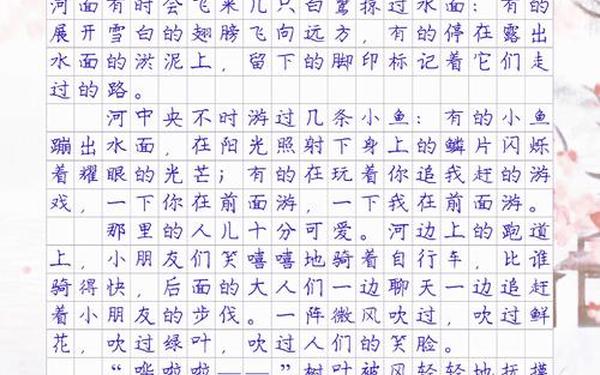 河面有时会飞来几只白鹭掠过水面：有的
展开雪白的翅膀飞向远方，有的停在露出
水面的淤泥上，留下的脚印标记着它们走
过的路。
河中央不时游过几条小鱼：有的小鱼
蹦出水面，在阳光照射下身上的鳞片闪烁
着耀眼的光芒；有的在玩着你追我赶的游
戏，一下你在前面游，一下我在前面游。
那里的人儿十分可爱。河边上的跑道
上，小朋友们笑嘻嘻地骑着自行车，比谁
骑得快，后面的大人们一边聊天一边追赶
着小朋友的步伐。一阵微风吹过，吹过鲜
花，吹过绿叶，吹过人们的笑脸。
“哗啦啦——”树叶被风轻轻地抚摸